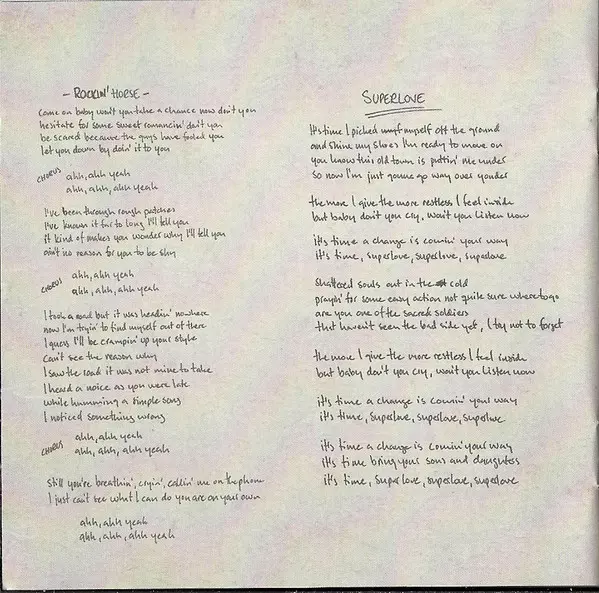 - ROCKIN' HORSE -
Come on baby won't you take a chance now don't you
hesitate for some sweet romancin' don't you
be scared because the guys have fooled you
let you down by doin' it to you
CHORUS
ahh, ahh yeah
ahh, ahh, ahh yeah
I've been through rough patches
I've known it far to long I'll tell you
it kind of makes you wonder why I'll tell you
ain't no reason for you to be shy
CHORUS
ahh, ahh yeah
ahh, ahh, ahh yeah
I took a road but it was headin' nowhere
now I'm tryin' to find myself out of there
I guess I'll be crampin' up your style
Can't see the reason why
I saw the road it was not mine to take
I heard a noice as you were late
while humming a simple song
I noticed something wrong
CHORUS
ahh, ahh yeah
ahh, ahh, ahh yeah
still you're breathin', cryin', callin' me on the phone
I just can't see what I can do you are on your own
ahh, ahh yeah
ahh, ahh, ahh yeah
SUPERLOVE
It's time I picked myself off the ground
and shine my shoes I'm ready to move on
you know this old town is puttin' me under
so now I'm just gonna go way over yonder
the more I give the more restless I feel inside
but baby don't you cry, won't you listen now
it's time a change is comin' your way
it's time, superlove, superlove, superlove
shattered souls out in the cold
prayin' for some easy action not quite sure where to go
are you one of the sacred soldiers
that haven't seen the bad side yet, I try not to forget
the more I give the more restless I feel inside
but baby don't you cry, won't you listen now
it's time a change is comin' your way
it's time, superlove, superlove, superlove
it's time a change is comin' your way
it's time bring your sons and daughters
it's time, superlove, superlove, superlove